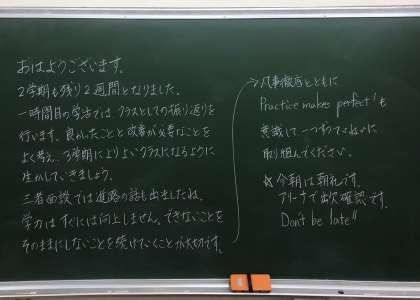 おはようございます。
2学期も残り2週間となりました。
一時間目の学活では クラスとしての振り返りを
行います。良かったことと改善が必要なことを
よく考え、3学期により良いクラスになるように
生かしていきましょう。
三者面談では進路の話も出ましたね。
学力はすぐには向上しません。できないことを
そのままにしないことを続けていくことが大切です。
凡事徹底とともに
Practice makes perfect'も
意識して一つずつていねいに
取り組んでください。
☆今朝は朝礼です。
アリーナで出欠確認です。
Don't be late!!